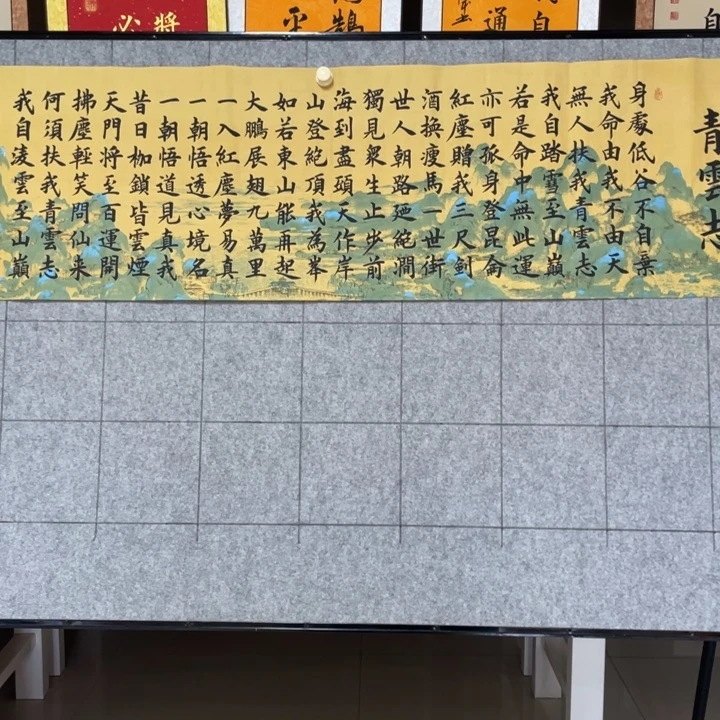 青雲志
身處低谷不自棄
我命由我不由天
無人扶我青雲志
我自踏雪至山巔
若是命中無此運
亦可孤身登昆侖
紅塵贈我三尺劍
酒換瘦馬一世街
世人朝路迊絕澗
獨見衆生止步前
海到盡頭天作岸
山登絕頂我為峯
如若東山能再起
大鵬展翅九萬里
一入紅塵夢易真
一朝悟透心境名
一朝悟道見真我
昔日枷鎖皆雲煙
天門將至百運開
拂塵輕笑問仙来
何須扶我青雲志
我自凌雲至山巔
將
必
鵠
平
我自
通